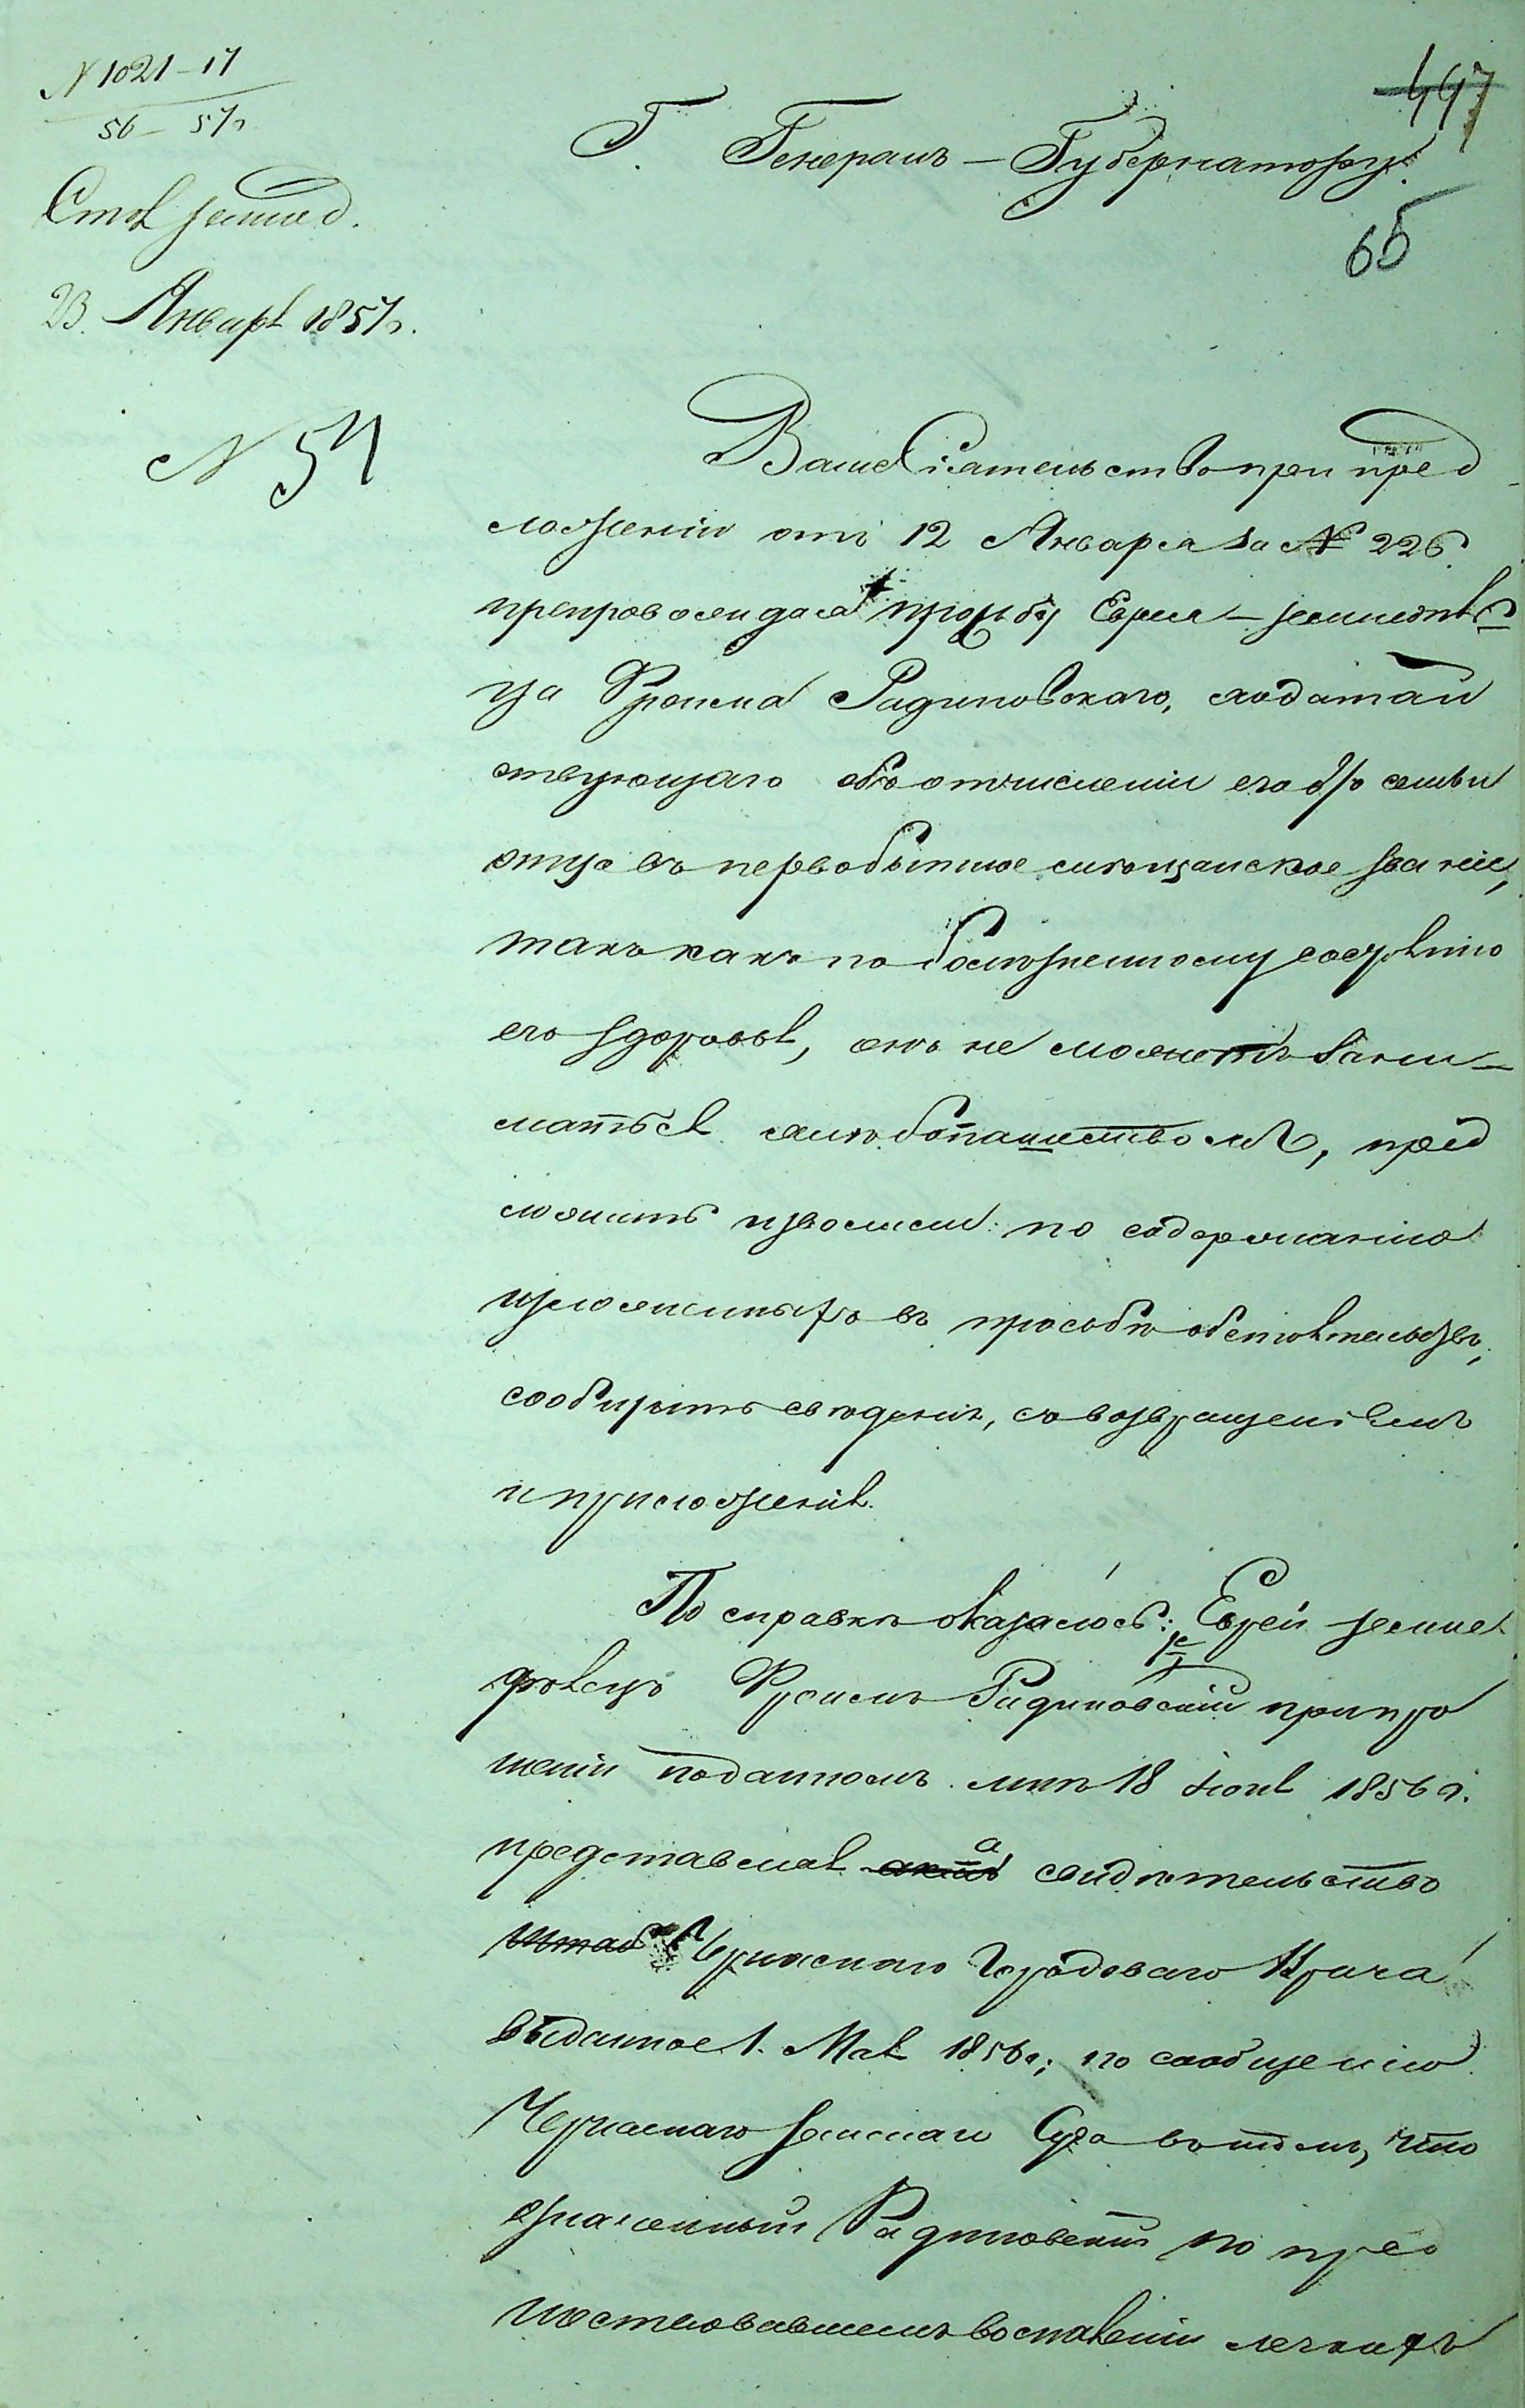 N 1021-17
56-57г
Стол земед.
23. Января 1857г.
N 57
497
65
Г. Генералъ-Губернатору.
Ваше Сіятельство при пред
ложеніи отъ 12 Января за № 226.
препровождая прозьбу Еврея-землед
ца Фроима Радиновскаго, ходатай
ствующаго объ отчисленіи его изъ семьи
отца въ первобытное мѣщанское званіе,
такъ какъ по болезненному состоянію
его здоровья, онъ не можетъ зани-
маться хлѣбопашествомъ, пред
ложить изволили: по содержанію
изложенныхъ въ просьбѣ обстоятельствъ,
сообщить свѣденія, съ возвращеніемъ
и приложенія.
По справкѣ оказалось: Еврей земле
дѣлецъ Фроимъ Радиновскій при про
шеніи поданномъ мнѣ 18 Іюля 1856 г.
представилъ свидѣтельство
Черкаскаго Городоваго Врача
выданное 1. Мая 1856г; по сообщенію
Черкаскаго Земскаго Суда въ томъ, что
означенный Радиновскій по пред
шествовавшемъ воспаленіи легкихъ